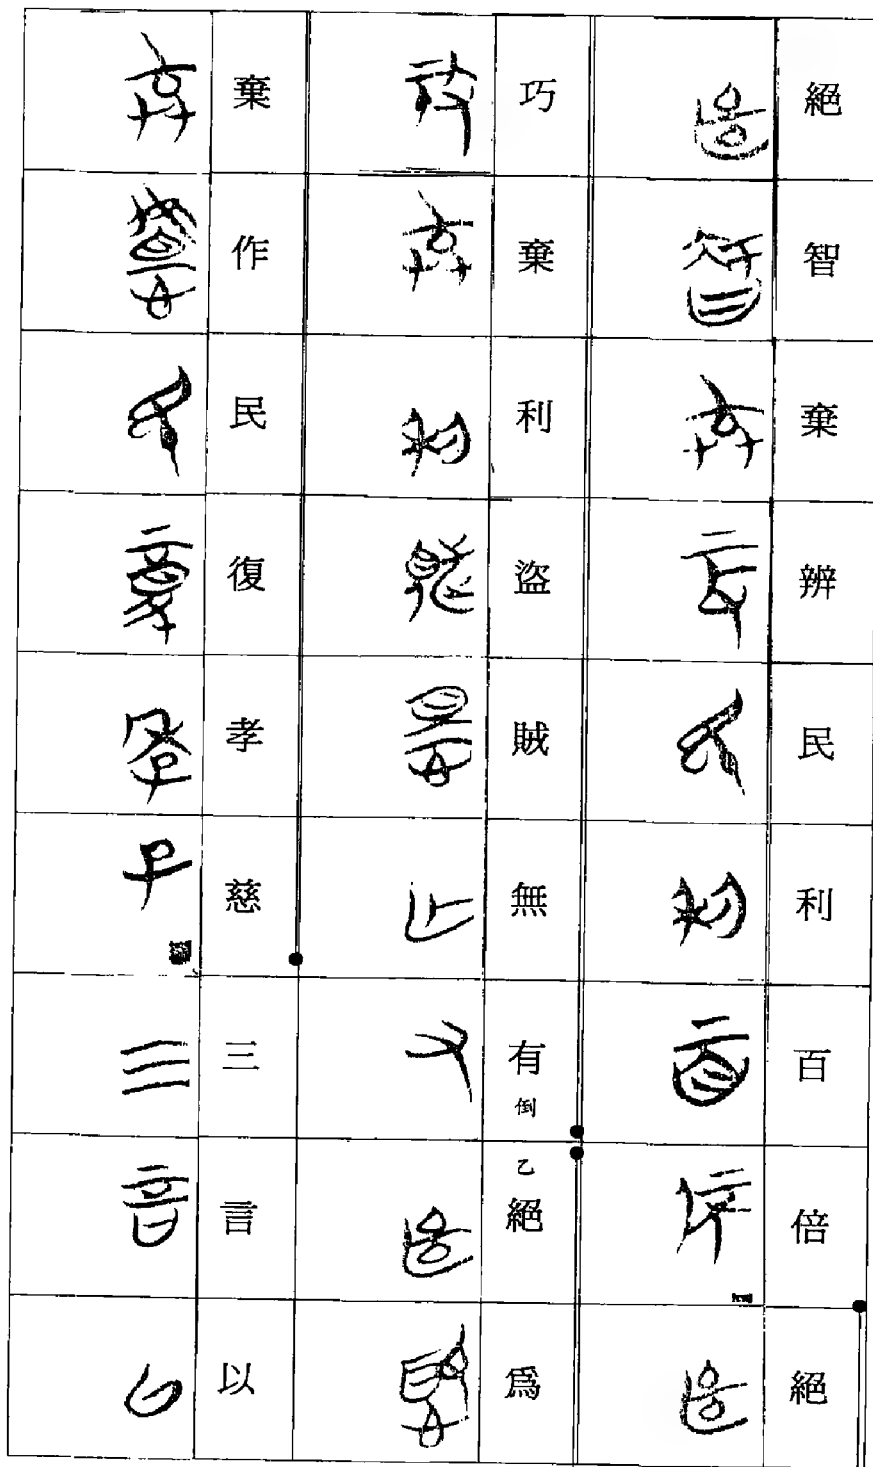 絕智棄辨民利百倍絕
巧棄利盜賊無有倒乙絕爲
棄作民復孝慈三言以